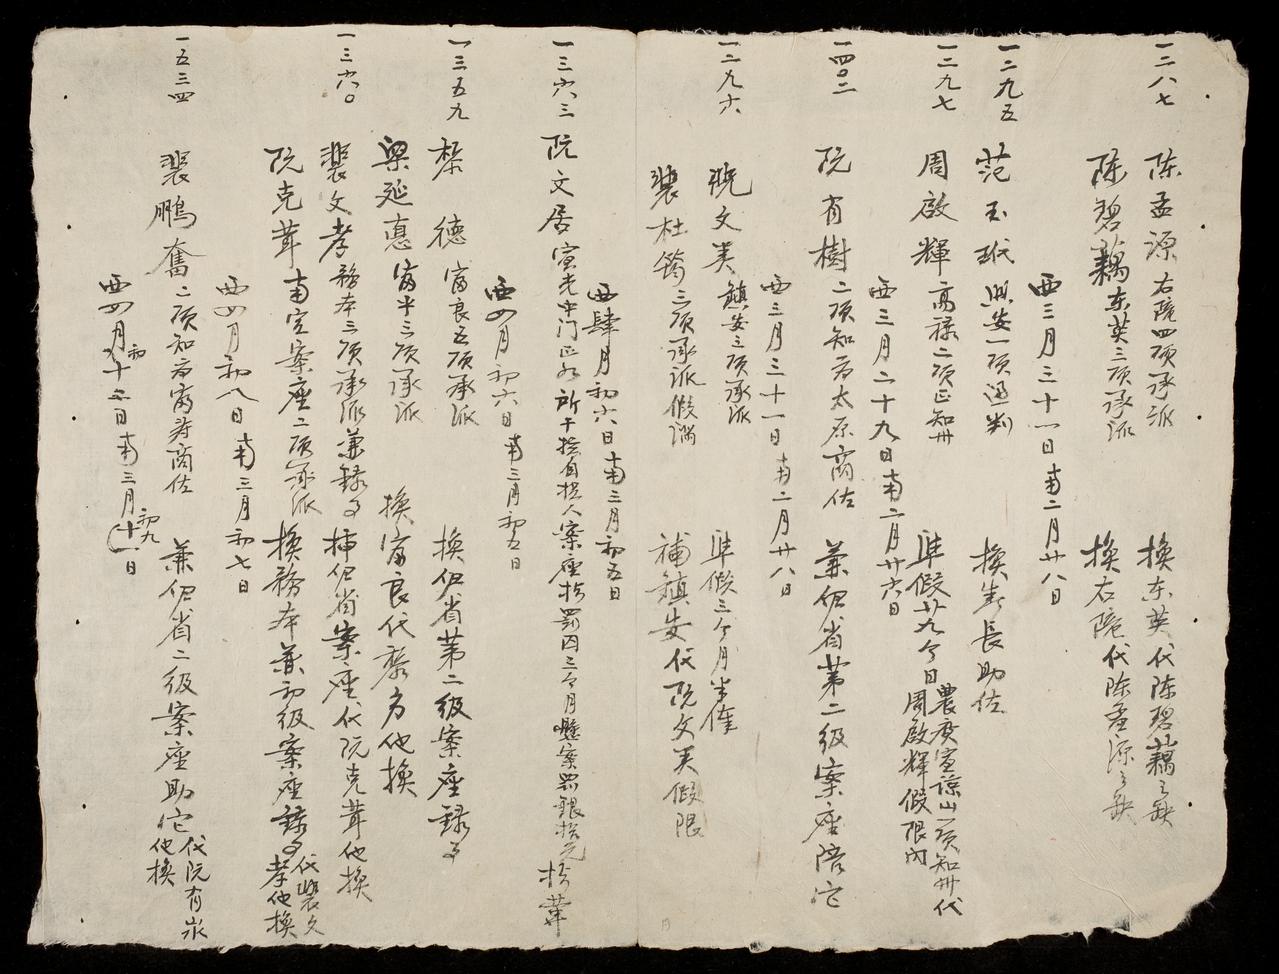 一二八七
陈孟源右隴四項承派 換东英代陈碧藕之缺
陈碧藕东英三項承派 換右隴代陈孟源之缺
西三月三十一日南二月廿八日
一二九五
范玉珷 安一項通判 換 長助佐
一二九七
周啟輝高禄二項正知州 准假廿九今日農 宣諒山一項知州代周啟輝假限內
西三月二十九日南二月廿六日
一四〇二
阮有樹二項知府太原商佐 兼伊省第二級案座陪
西三月三十一日南二月廿八日
一二九六
阮文美鎮安三項承派 准假三个月半俸
裴杜筠三項承派假滿 補鎮安代阮文美假限
西肆月初六日南三月初五日
一三六三
阮文居 光中门正 所千 人案座 罰囚三个月懸案罰銀
西四月初六日南三月初五日
一三五九
黎德富良五項承派 換伊省第二級案座錄事
梁延憙富平三項承派 換富良代黎 他換
一三六〇
裴文孝務本三項承派兼錄事 補伊省案座代阮克茸他換
阮克茸南定案座二項承派 換務本兼初級案座錄事代裴文孝他換
西四月初八日南三月初七日
一五三四
裴鵬奮二項知府富寿商佐 兼伊省二級案座助 代阮有 他換
西四月初十二日南三月初九十一日